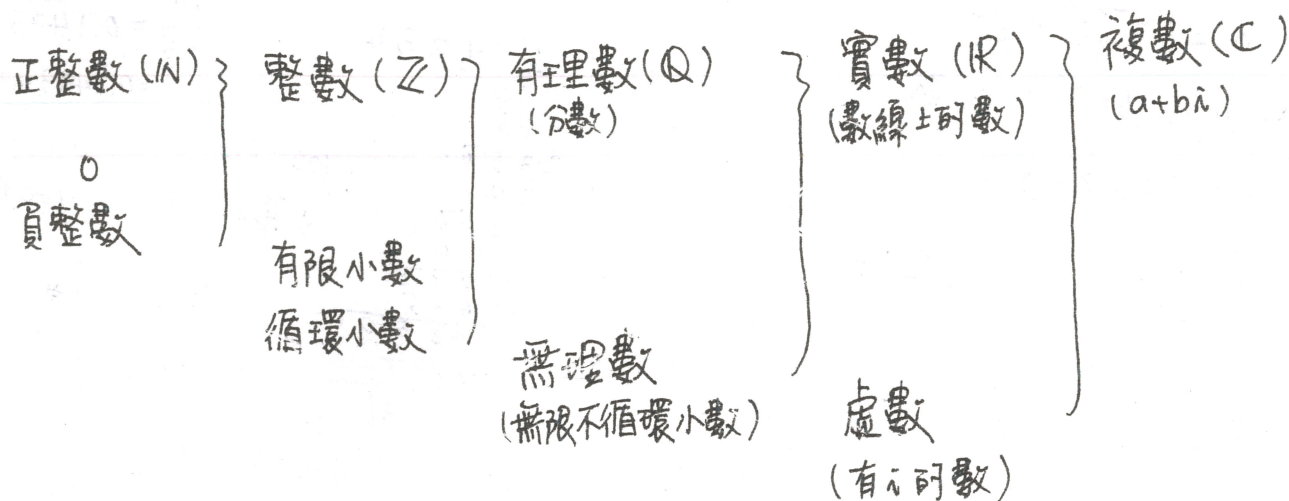 正整數(ℕ)
0
負整數
整數(ℤ)
有限小數
循環小數
有理數(ℚ)
(分數)
無理數
(無限不循環小數)
實數(ℝ)
(數線上的數)
虛數
(有i的數)
複數(ℂ)
(a+bi)